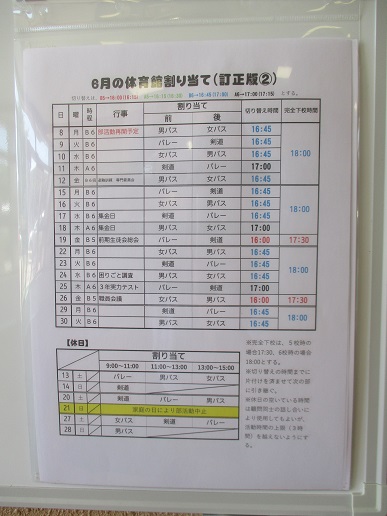 6月の体育館割り当て(訂正版②)
切り替えは、
日 曜 時程 行事 割り当て 切り替え時間 完全下校時間
前 後
8 月 B6 部活動再開予定 男バス 女バス 16:45
9 火 B6 バレー 剣道 16:45
10 水 B6 女バス 男バス 16:45 18:00
11 木 A6 剣道 バレー 17:00
12 金 男バス 女バス 16:45
15 月 B6 バレー 剣道 16:45
16 火 B6 女バス 男バス 16:45
17 水 B6 集金日 剣道 バレー 16:45 18:00
18 木 A6 集金日 男バス 女バス 17:00
19 金 B5 前期生徒会総会 バレー 剣道 16:00 17:30
22 月 B6 女バス 男バス 16:45
23 火 B6 剣道 バレー 16:45
24 水 B6 困りごと調査 男バス 女バス 16:45 18:00
25 木 A6 3年実力テスト バレー 剣道 17:00
26 金 B5 職員会議 女バス 男バス 16:00 17:30
29 月 B6 剣道 バレー 16:45
30 火 B6 男バス 女バス 16:45 18:00
【休日】
割り当て
9:00~11:00 11:00~13:00 13:00~15:00
13 土 バレー 男バス 女バス
14 日 剣道
20 土 剣道 バレー 男バス
21 日 家庭の日により部活動中止
27 土 女バス 剣道 バレー
28 日 男バス
※完全下校は、5校時の
場合17:30、6校時の場合
18:00とする。
※切り替えの時間までに
片付けを済ませて次の部
に引き継ぐ。
※休日の空いている時間
は顧問同士の話し合いに
より使用してもよいが、
活動時間の上限(3時
間)を超えないようにす
る。